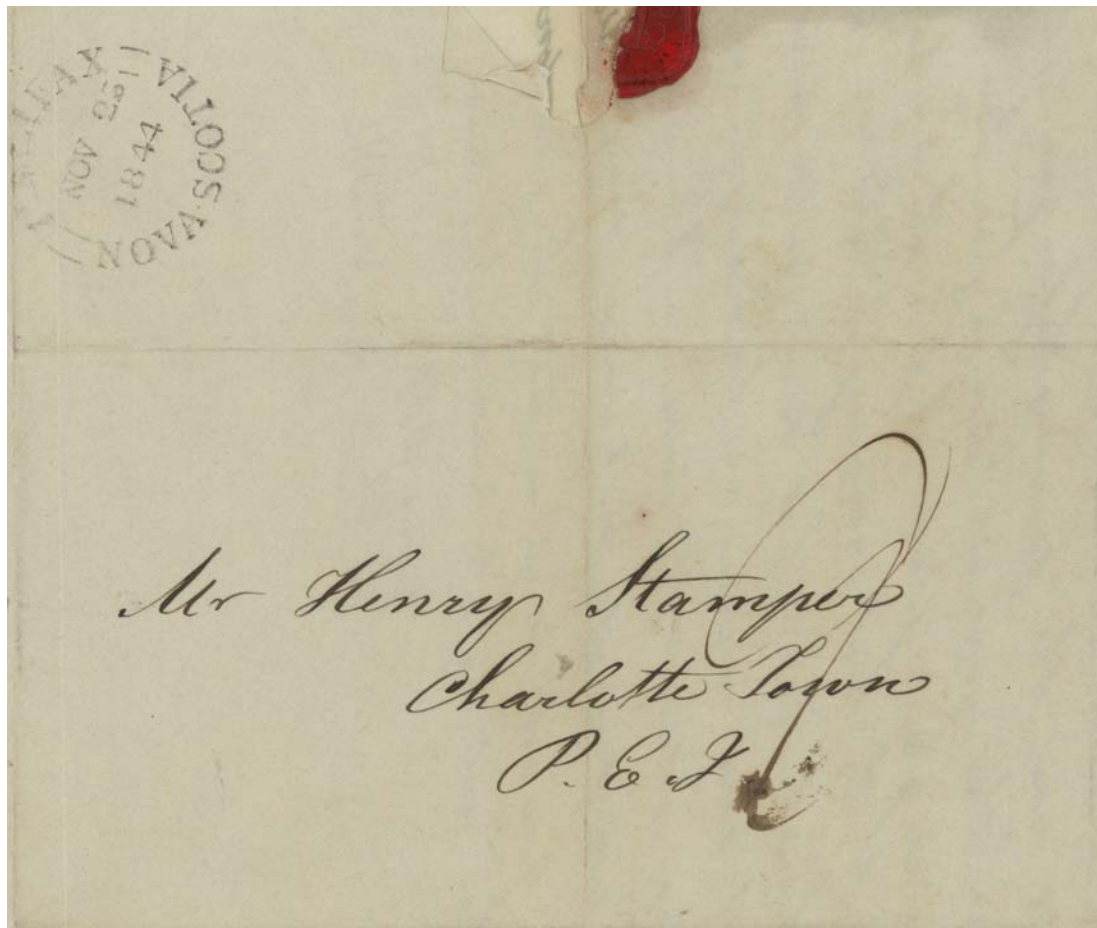 HALIFAX
NOVA SCOTIA
NOV
1844
Mr Henry Stamper
Charlotte Town
P. E. I